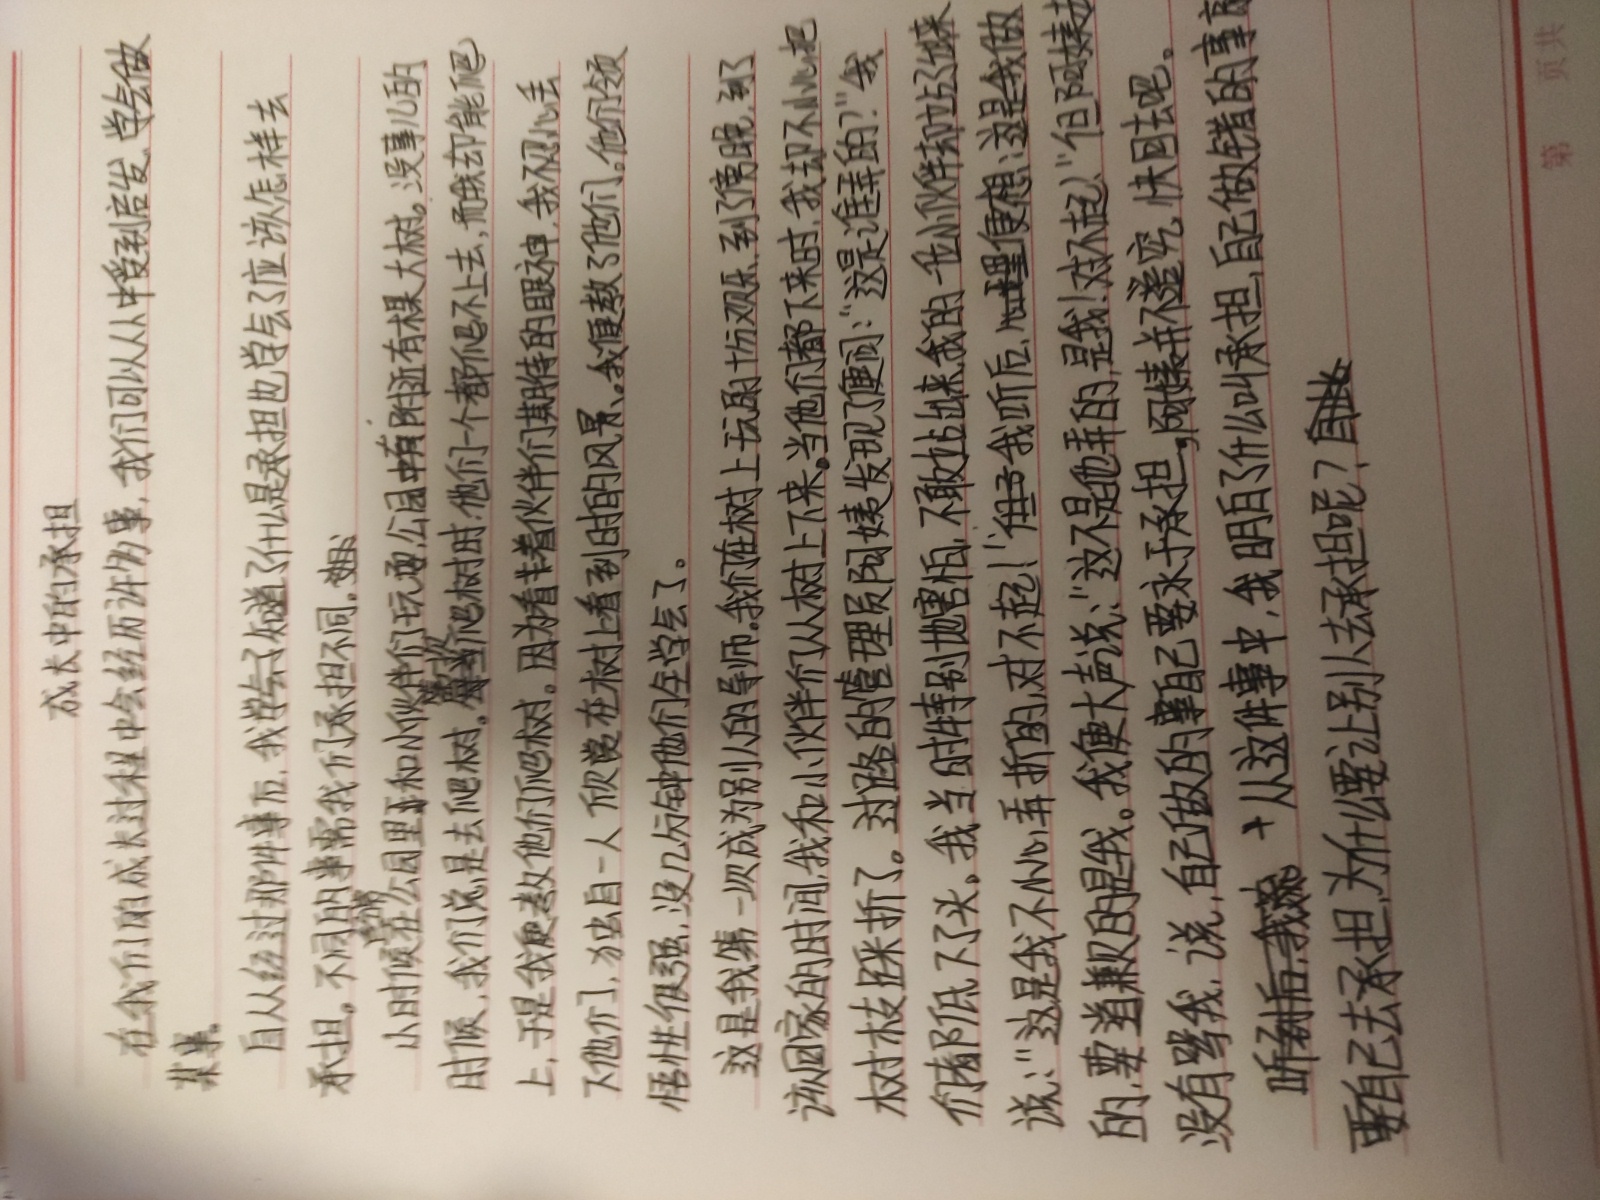 成长中的承担
在我们的成长过程中会经历许多事，我们可以从中受到启发，学会做
某事。
自从经过那件事后，我学会了知道了什么是承担也学会了应该怎样去
承担。不同的事需我们承担不同。
小时候在公园里和小伙伴们玩耍，公园中有附近有棵大树。没事儿的
时候，我们总是去爬树。爬树时他们一个都爬不上去，而我却能爬
上，于是我便教他们爬树。因为看着伙伴们期待的眼神，我不忍心丢
下他们，独自一人欣赏在树上看到时的风景。我便教了他们。他们领
悟性很强，没几分钟他们全学会了。
这是我第一次成为别人的导师。我们在树上玩的十分欢乐，到了傍晚，到了
该回家的时间，我和小伙伴们从树上下来。当他们都下来时，我却不小心把
树枝踩折了。过路的管理员阿姨发现了便问：“这是谁弄的？”我
们都低下了头。我当时特别地害怕，不敢站出来，我的一名小伙伴却站了出来
说：“这是我不小心弄折的，对不起！”我听后，心里便想：这是我做
的，要道歉的是我。我便大声说：“这不是他弄的，是我！对不起！”但阿姨
没有骂我，说，自己做的事自己要永于承担。阿姨并不追究，快回去吧。
从这件事中，我明白了什么叫承担，自己做错的事
要自己去承担，为什么要让别人去承担呢？
第 页 共